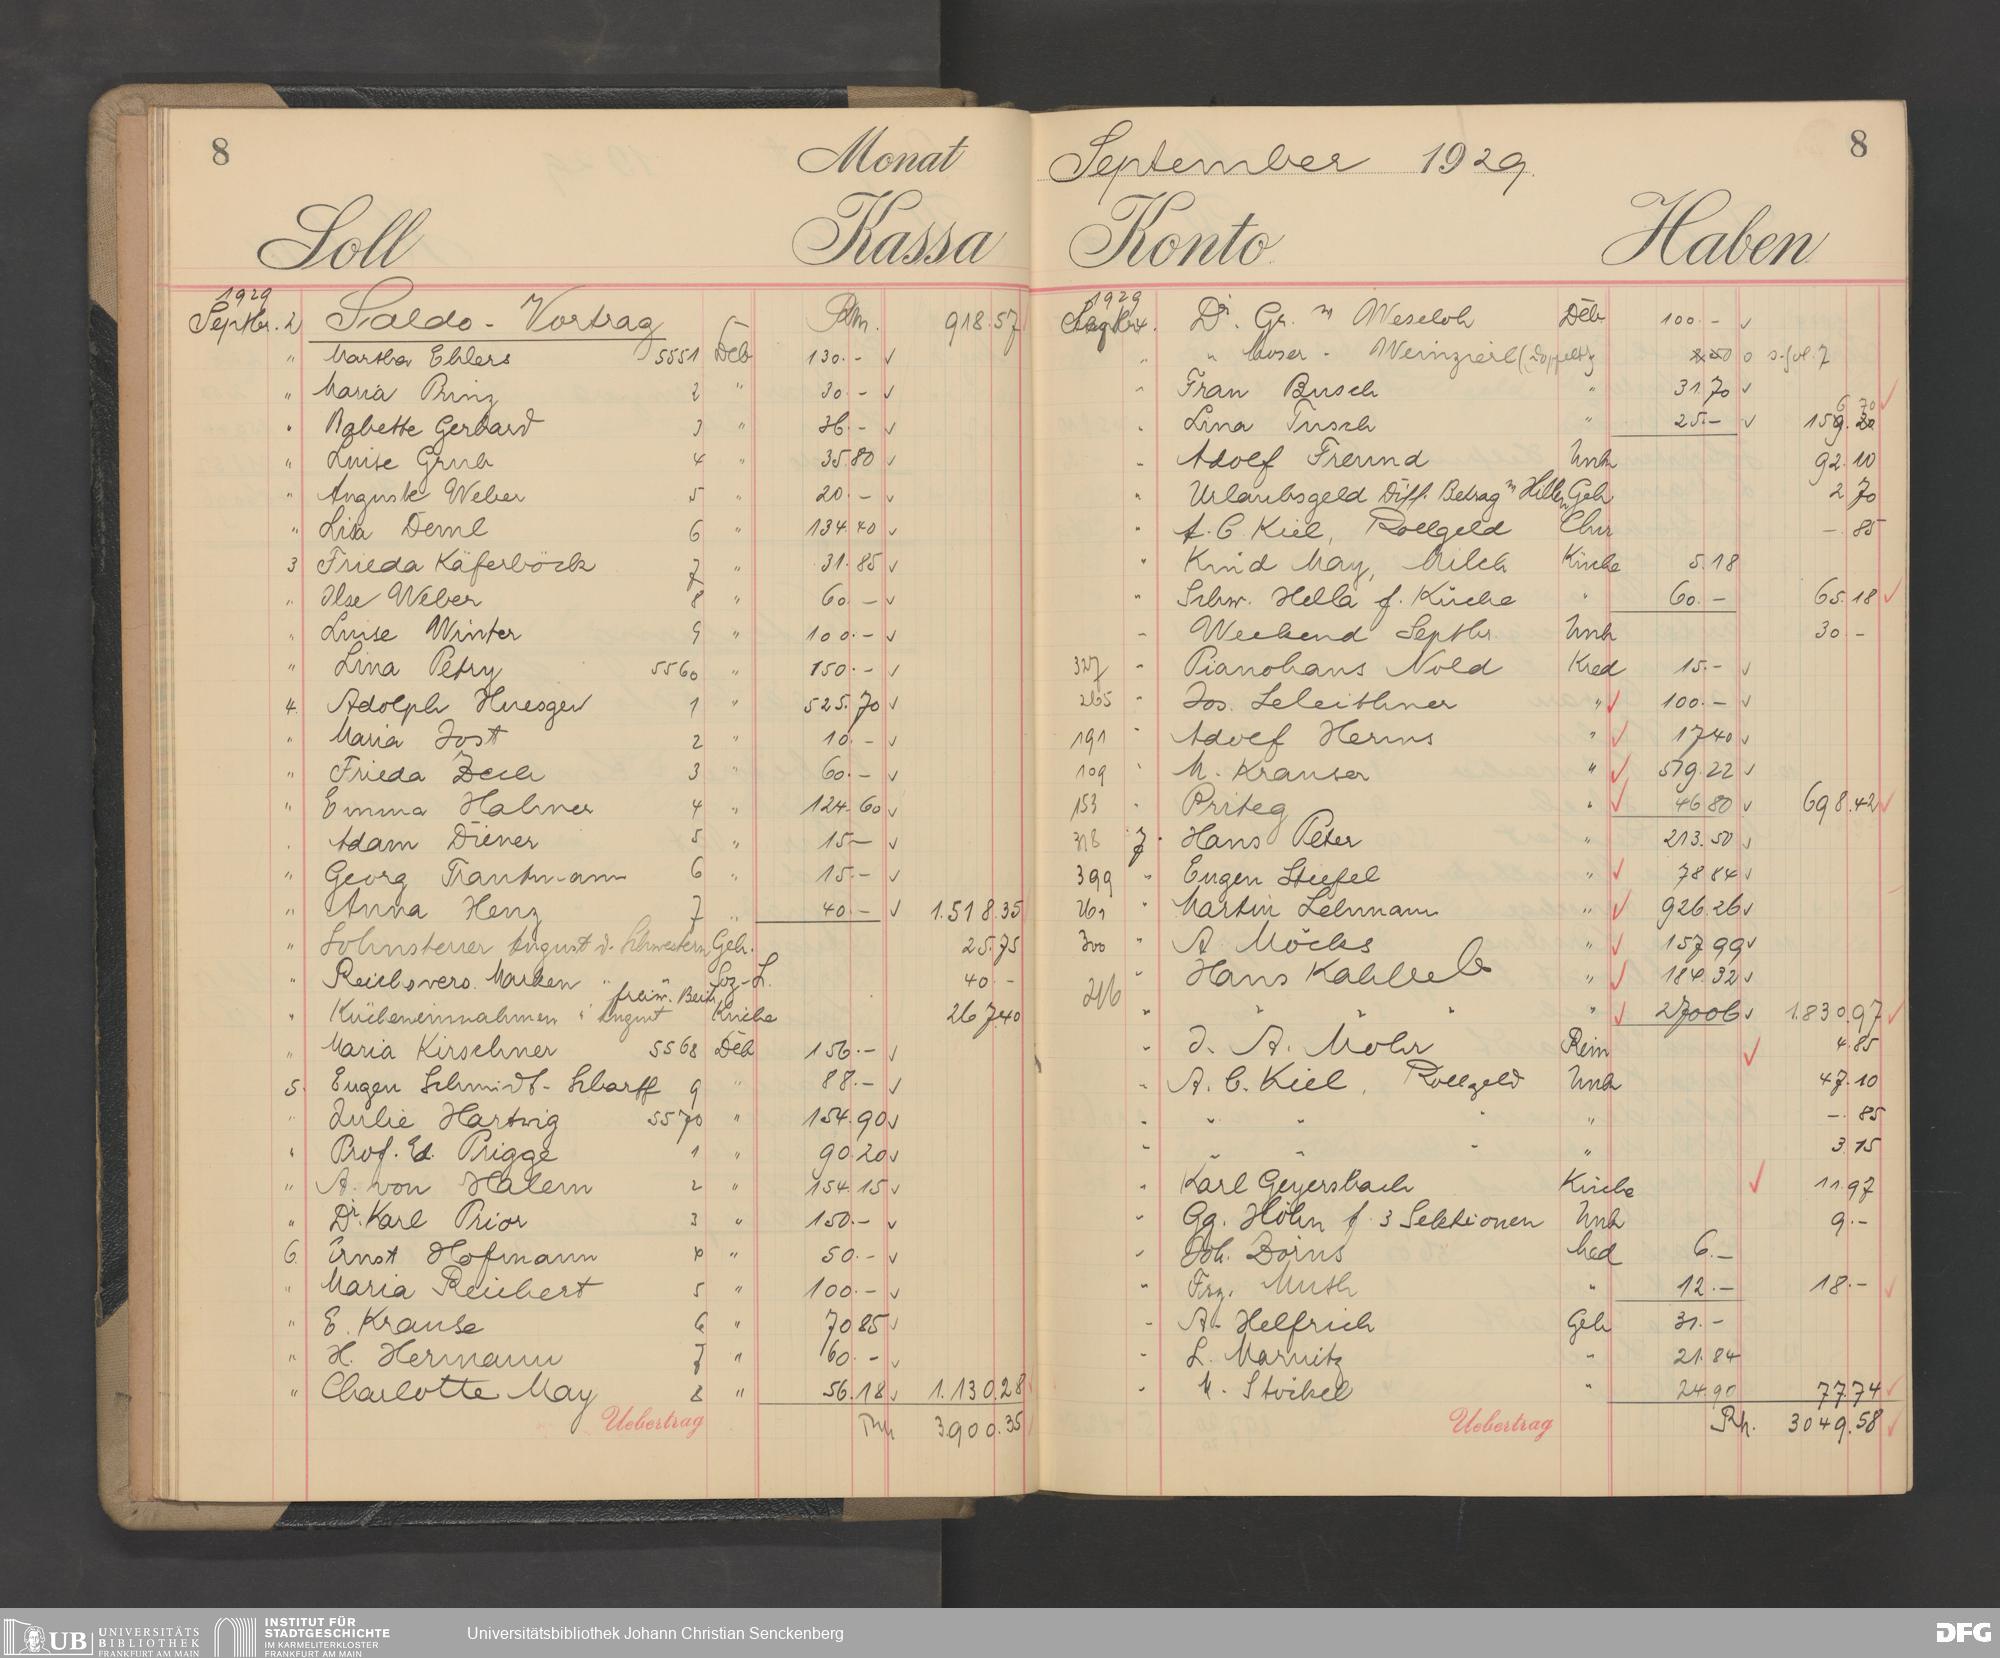 8 Monat
Soll Kassa
1929
Septbr. 2 Saldo-Vortrag Rm. 918.57
" Martha Ehlers 5551 Deb 130.-
" Maria Prinz 2 " 30.-
" Babette Gerhard 3 " 36.-
" Luise Grub 4 " 35.80
" Auguste Weber 5 " 20.-
" Lisa Deml 6 " 134.40
3 Frieda Käferböck 7 " 31.85
" Ilse Weber 8 " 60.-
" Luise Winter 9 " 100.-
" Lina Petry 5560 " 150.-
4. Adolph Huesgen 1 " 525.70
" Maria Jost 2 " 10.-
" Frieda Zech 3 " 60.-
" Emma Hahner 4 " 124.60
" Adam Diener 5 " 15.-
" Georg Trautmann 6 " 15.-
" Anna Henz 7 " 40.- 1.518.35
" Lohnsteuer August d. Schwestern Geh. 25.75
" Reichsvers. Marken " freiw. Beitr. Soz-L. 40.-
" Kücheneinnahmen " August Küche 267.40
" Maria Kirschner 5568 Deb 156.-
5. Eugen Schmidt-Scharff 9 " 88.-
" Julie Hartwig 5570 " 154.90
" Prof. Ed. Prigge 1 " 90.20
" A. von Halem 2 " 154.15
" Dr. Karl Prior 3 " 150.-
6. Ernst Hofmann 4 " 50.-
" Maria Reichert 5 " 100.-
" E. Krause 6 " 70.85
" H. Hermann 7 " 60.-
" Charlotte May 8 " 56.18 1.130.28
Uebertrag Rm 3.900.35
September 1929. 8
Konto Haben
1929
Septbr 4. Dr. Gr. m Weseloh Deb 100.-
" " Moser - Weinzierl (doppelt) " s. fol. 7
" Frau Busch " 31.70
" Lina Tusch " 25.- 156.70
" Adolf Freund Unk 92.10
" Urlaubsgeld Diff. Betrag m Hillen Geh 2.70
" A. C. Kiel, Rollgeld Chir -.85
" Kind May, Milch Küche 5.18
" Schw. Hella f. Küche " 60.- 65.18
" Weekend Septbr. Unk 30.-
327 " Pianohaus Nold Kred 15.-
265 " Jos. Leleithner " 100.-
191 " Adolf Herms " 17.40
109 " M. Krauser " 519.22
153 " Priteg " 46.80 698.42
318 7. Hans Peter " 213.50
399 " Eugen Stiefel " 78.84
261 " Martin Lehmann " 926.26
300 " A. Möcks " 157.99
216 " Hans Kahl " 184.32
" " " " " 270.06 1.830.97
" J. A. Mohr Rein 4.85
" A. C. Kiel, Rollgeld Unk 47.10
" " " " " -.85
" " " " " 3.15
" Karl Geyersbach Küche 11.97
" Gg. Höhn f. 3 Sektionen Unk 9.-
" Joh. Dorns Med 6.-
" Frz. Muth " 12.- 18.-
" A. Helfrich Geh 31.-
" L. Marnitz " 21.84
" M. Stöckel " 24.90 77.74
Uebertrag Rm. 3049.58
UB UNIVERSITÄTS BIBLIOTHEK FRANKFURT AM MAIN
INSTITUT FÜR STADTGESCHICHTE IM KARMELITERKLOSTER FRANKFURT AM MAIN
Universitätsbibliothek Johann Christian Senckenberg
DFG